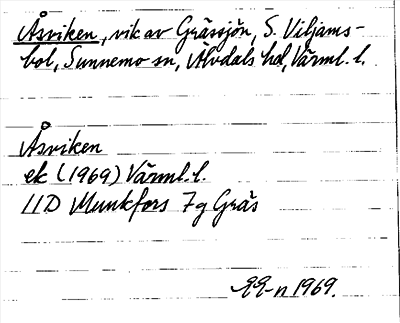 Åsviken, vik av Grässjön, S. Viljams-
bol, Sunnemo sn, Älvdals hd, Värml. l.
Åsviken
ek (1969) Värml. l.
11D Munkfors 7g Gräs
-n 1969.